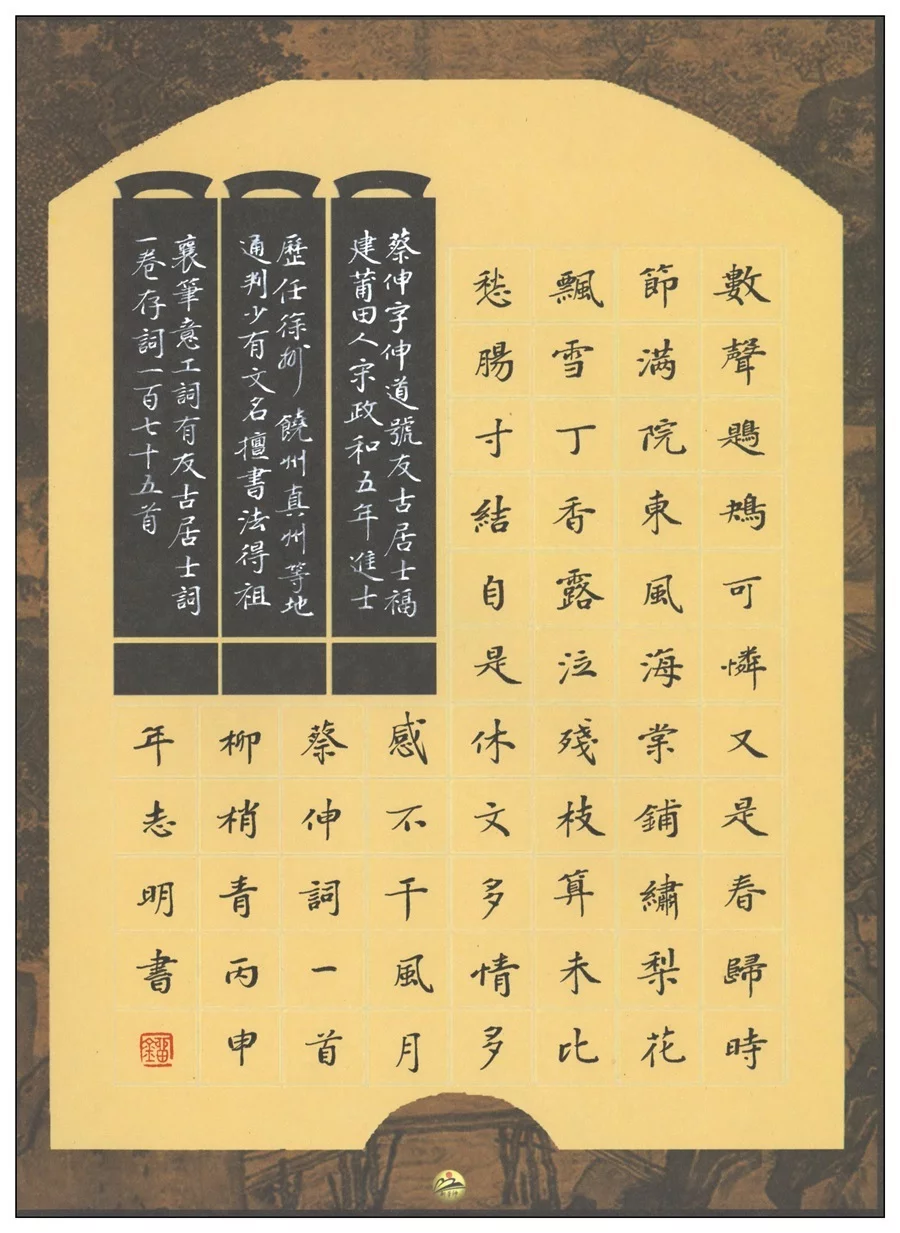 數聲鶗鴂可憐又是春歸時
節满院東風海棠鋪繡梨花
飄雪丁香露泣殘枝算未比
愁腸寸結自是休文多情多
感不干風月
蔡伸詞一首
柳梢青丙申
年志明書
蔡伸字伸道號友古居士福
建莆田人宋政和五年進士
歷任徐州饒州真州等地
通判少有文名擅書法得祖
襄筆意工詞有友古居士詞
一卷存詞一百七十五首